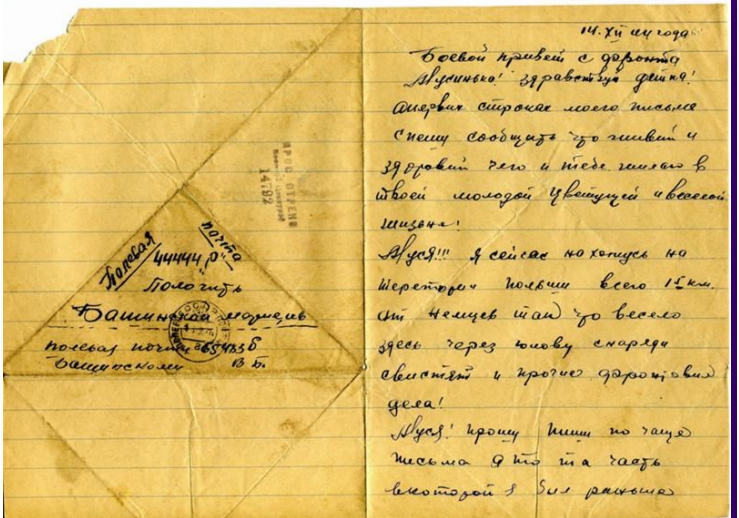 Полевая почта
44444 "р"
Полочить
Башинской
полевая почта 65453б
Башинскому В Б.
ПРОСМОТРЕНО
Военной Цензурой
14792
14. XII 44 года
Боевой привет с фронта
Мусинька! здравствуй детка!
Опервих строках моего письма
спешу сообщить что живий и
здоровий чего и тебе желаю в
твоей молодой цветущей и веселой
жизни!
Муся!!! я сейчас нахожусь на
теретории польши всего 15 км.
от немцев так что весело
здесь через голову снаряди
свистят и прочие фронтовие
дела!
Муся! прошу пиши по чаще
письма а то та часть
вкоторой я бил раньше